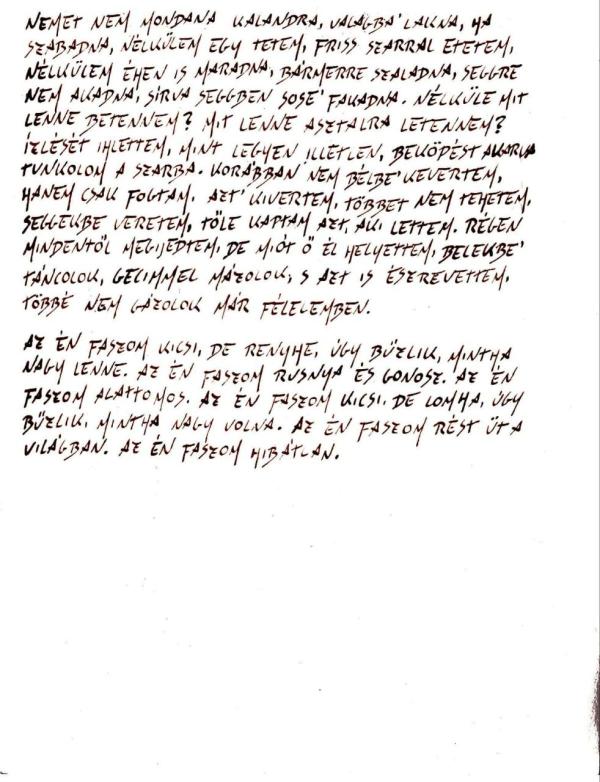 NEMET NEM MONDANA KALANDRA, VALAGBA' LAKNA, HA
SZABADNA, NÉLKÜLEM EGY TETEM, FRISS SZARRAL ETETEM,
NÉLKÜLEM ÉHEN IS MARADNA, BÁRMERRE SZALADNA, SEGGRE
NEM AKADNA, SÍRVA SEGGBEN SOSE' FAKADNA. NÉLKÜLE MIT
LENNE BETENNEM? MIT LENNE ASZTALRA LETENNEM?
ÍZLÉSÉT IHLETTEM, MINT LEGYEN ILLETLEN, BEKÖPÉST AKARVA
TUNKOLOM A SZARBA. KORÁBBAN NEM BÉLBE' KEVERTEM,
HANEM CSAK FOGTAM. AZT' KIVERTEM, TÖBBET NEM TEHETEM,
SEGGEKBE VERETEM, TŐLE KAPTAM AZT, AKI LETTEM. RÉGEN
MINDENTŐL MEGIJEDTEM, DE MIÓT Ő ÉL HELYETTEM, BELEKBE'
TÁNCOLOK, GECIMMEL MÁZOLOK, S AZT IS ÉSZREVETTEM,
TÖBBÉ NEM GÁZOLOK MÁR FÉLELEMBEN.
AZ ÉN FASZOM KICSI, DE RENYHE, ÚGY BŰZLIK, MINTHA
NAGY LENNE. AZ ÉN FASZOM RUSNYA ÉS GONOSZ. AZ ÉN
FASZOM ALATTOMOS. AZ ÉN FASZOM KICSI, DE LOMHA, ÚGY
BŰZLIK, MINTHA NAGY VOLNA. AZ ÉN FASZOM RÉST ÜT A
VILÁGBAN. AZ ÉN FASZOM HIBÁTLAN.